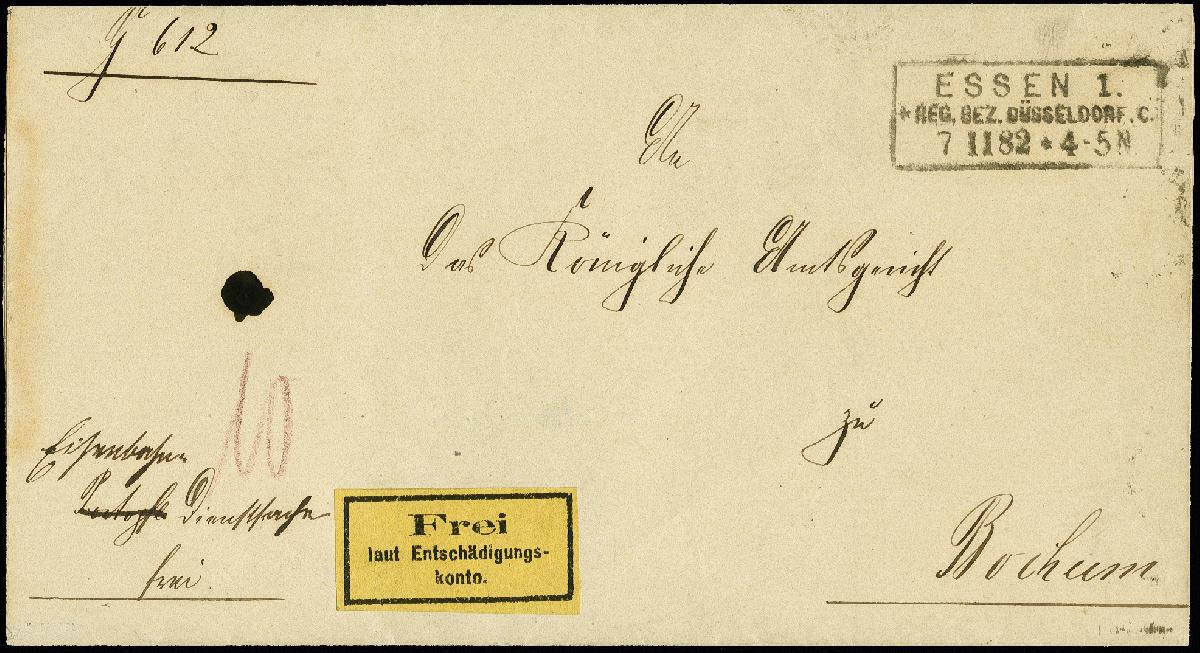 J 612
ESSEN 1.
* REG. BEZ. DÜSSELDORF. C.
7 11 82 * 4-5 N
An
Das Königliche Amtsgericht
zu
Bochum
10
Eisenbahn
Dienstsache
frei.
Frei
laut Entschädigungs-
konto.